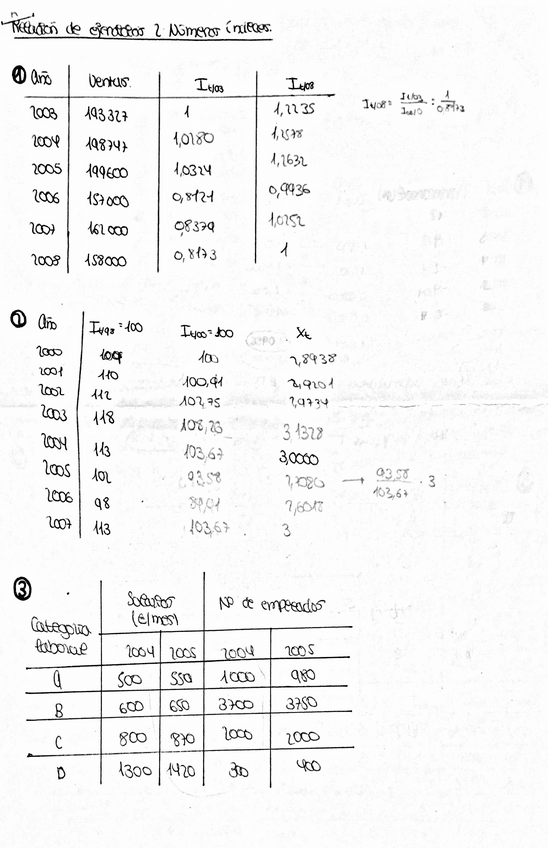 Relación de ejercicios 2 Números índices.
① Año Ventas. It/03 It/08
It/08 = It/03 / I08/0 = 1 / 0,8173
2003 193327 1 1,2235
2004 198747 1,0280 1,2578
2005 199600 1,0324 1,2632
2006 157000 0,8121 0,9936
2007 162000 0,8379 1,0252
2008 158000 0,8173 1
② Año It/98=100 It/00=100 Xt
2000 109 100 2,8938
2001 110 100,91 2,9201
2002 112 102,75 2,9734
2003 118 108,23 3,1328
2004 113 103,67 3,0000
2005 102 93,58 2,7080 → 93,58 / 103,67 · 3
2006 98 89,91 2,6018
2007 113 103,67 3
③
Categoría laboral Salarios (€/mes) Nº de empleados
2004 2005 2004 2005
A 500 550 1000 980
B 600 650 3700 3750
C 800 870 2000 2000
D 1300 1420 300 400